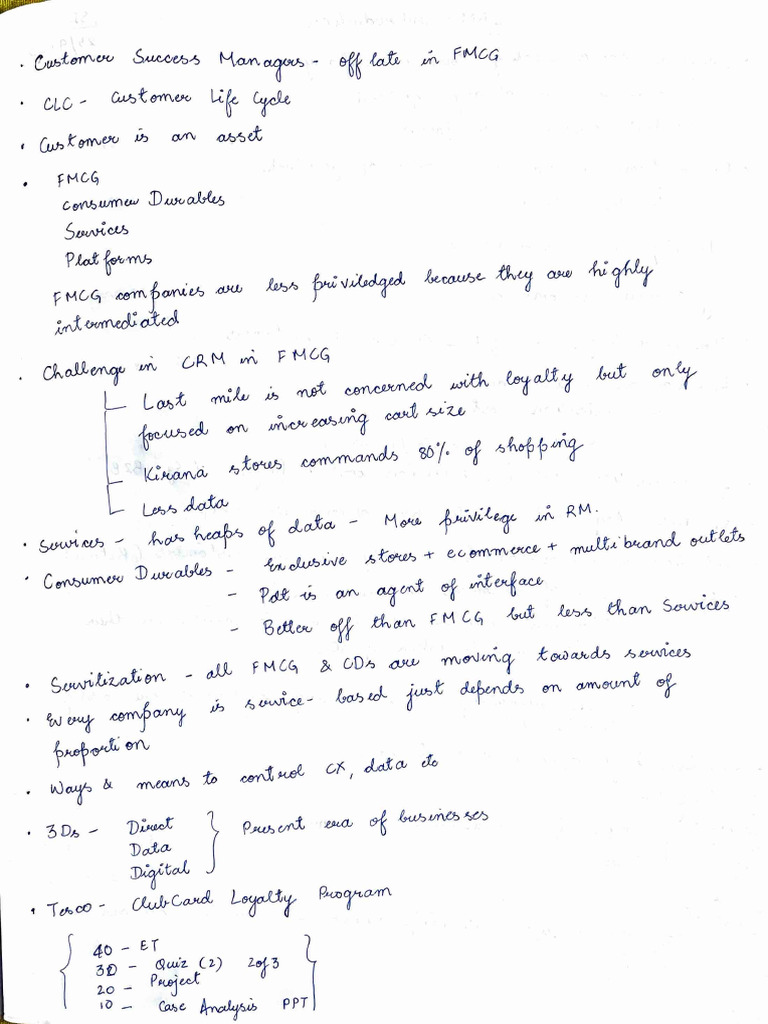 • Customer Success Managers - off late in FMCG
• CLC - Customer Life Cycle
• Customer is an asset
• FMCG
Consumer Durables
Services
Platforms
FMCG companies are less priviledged because they are highly
intermediated
• Challenge in CRM in FMCG
Last mile is not concerned with loyalty but only
focused on increasing cart size
Kirana stores commands 80% of shopping
Less data
• Services - has heaps of data - More privilege in RM.
• Consumer Durables - Exclusive stores + ecommerce + multibrand outlets
- Pdt is an agent of interface
- Better off than FMCG but less than Services
• Servitization - all FMCG & CDs are moving towards services
• Every company is service-based just depends on amount of
proportion
• Ways & means to control CX, data etc
• 3Ds - Direct } Present era of businesses
Data
Digital
• Tesco - ClubCard Loyalty Program
40 - ET
30 - Quiz (2) 2 of 3
20 - Project
10 - Case Analysis PPT